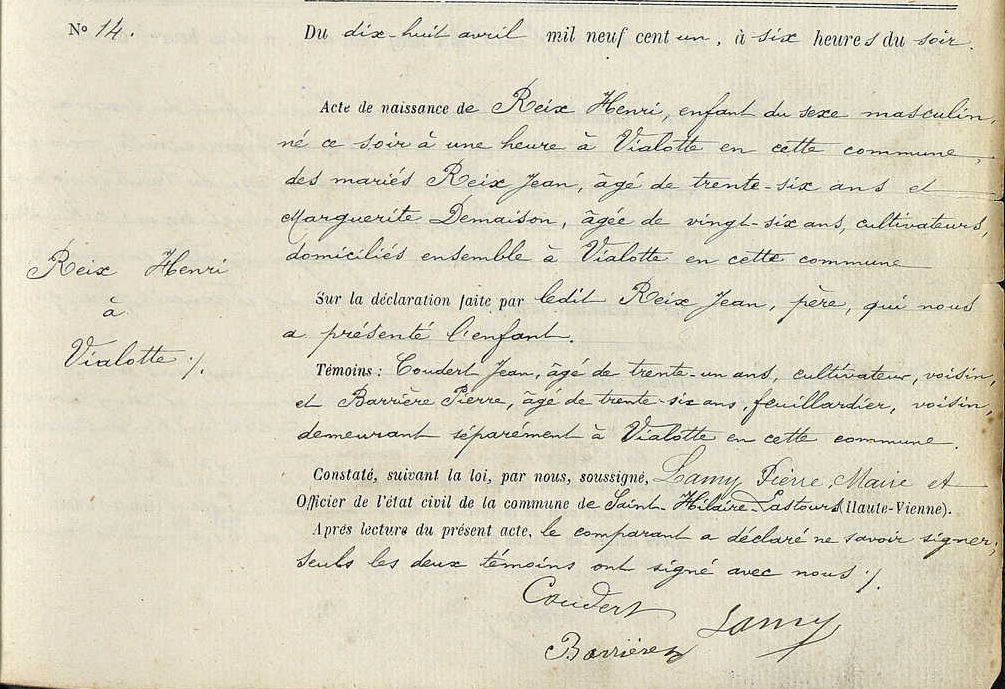 N° 14.
Du dix-huit avril mil neuf cent un, à six heures du soir.
Acte de naissance de Reix Henri, enfant du sexe masculin,
né ce soir à une heure à Vialotte en cette commune,
des mariés Reix Jean, âgé de trente-six ans et
Marguerite Demaison, âgée de vingt-six ans, cultivateurs,
domiciliés ensemble à Vialotte en cette commune
Reix Henri
à
Vialotte ·/.
Sur la déclaration faite par ledit Reix Jean, père, qui nous
a présenté l'enfant.
Témoins : Coudert Jean, âgé de trente-un ans, cultivateur, voisin,
et Barrière Pierre, âgé de trente-six ans, feuillardier, voisin,
demeurant séparément à Vialotte en cette commune.
Constaté, suivant la loi, par nous, soussigné, Lamy Pierre, Maire et
Officier de l'état civil de la commune de Saint-Hilaire-Lastours (Haute-Vienne).
Après lecture du présent acte, le comparant a déclaré ne savoir signer,
seuls les deux témoins ont signé avec nous ·/.
Coudert
Lamy
Barrière